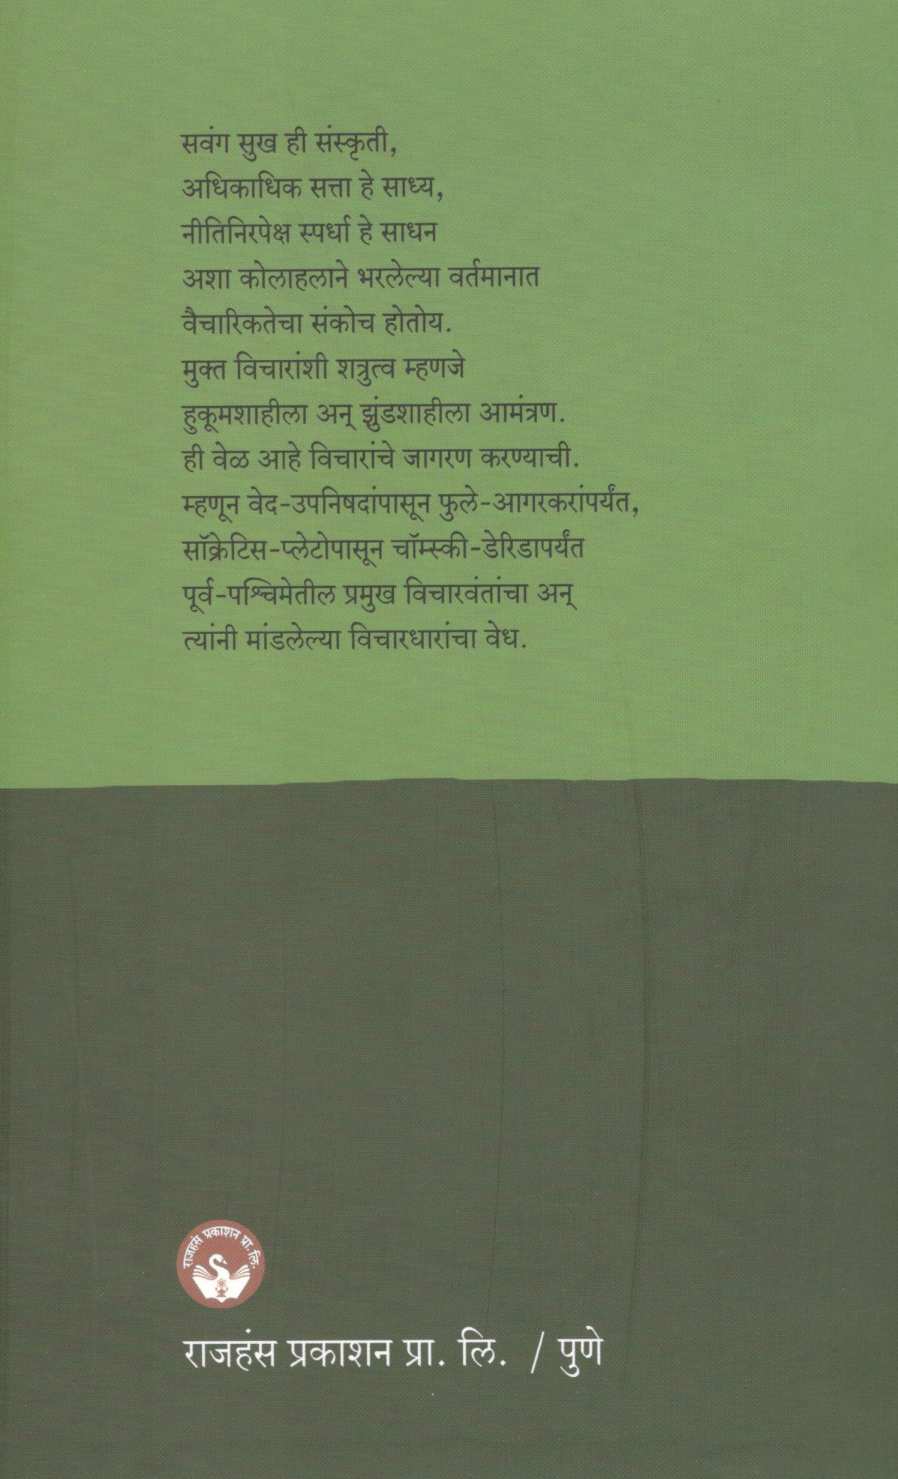 सवंग सुख ही संस्कृती,
अधिकाधिक सत्ता हे साध्य,
नीतिनिरपेक्ष स्पर्धा हे साधन
अशा कोलाहलाने भरलेल्या वर्तमानात
वैचारिकतेचा संकोच होतोय.
मुक्त विचारांशी शत्रुत्व म्हणजे
हुकूमशाहीला अन् झुंडशाहीला आमंत्रण.
ही वेळ आहे विचारांचे जागरण करण्याची.
म्हणून वेद-उपनिषदांपासून फुले-आगरकरांपर्यंत,
सॉक्रेटिस-प्लेटोपासून चॉम्स्की-डेरिडापर्यंत
पूर्व-पश्चिमेतील प्रमुख विचारवंतांचा अन्
त्यांनी मांडलेल्या विचारधारांचा वेध.
राजहंस प्रकाशन प्रा. लि.
राजहंस प्रकाशन प्रा. लि. / पुणे